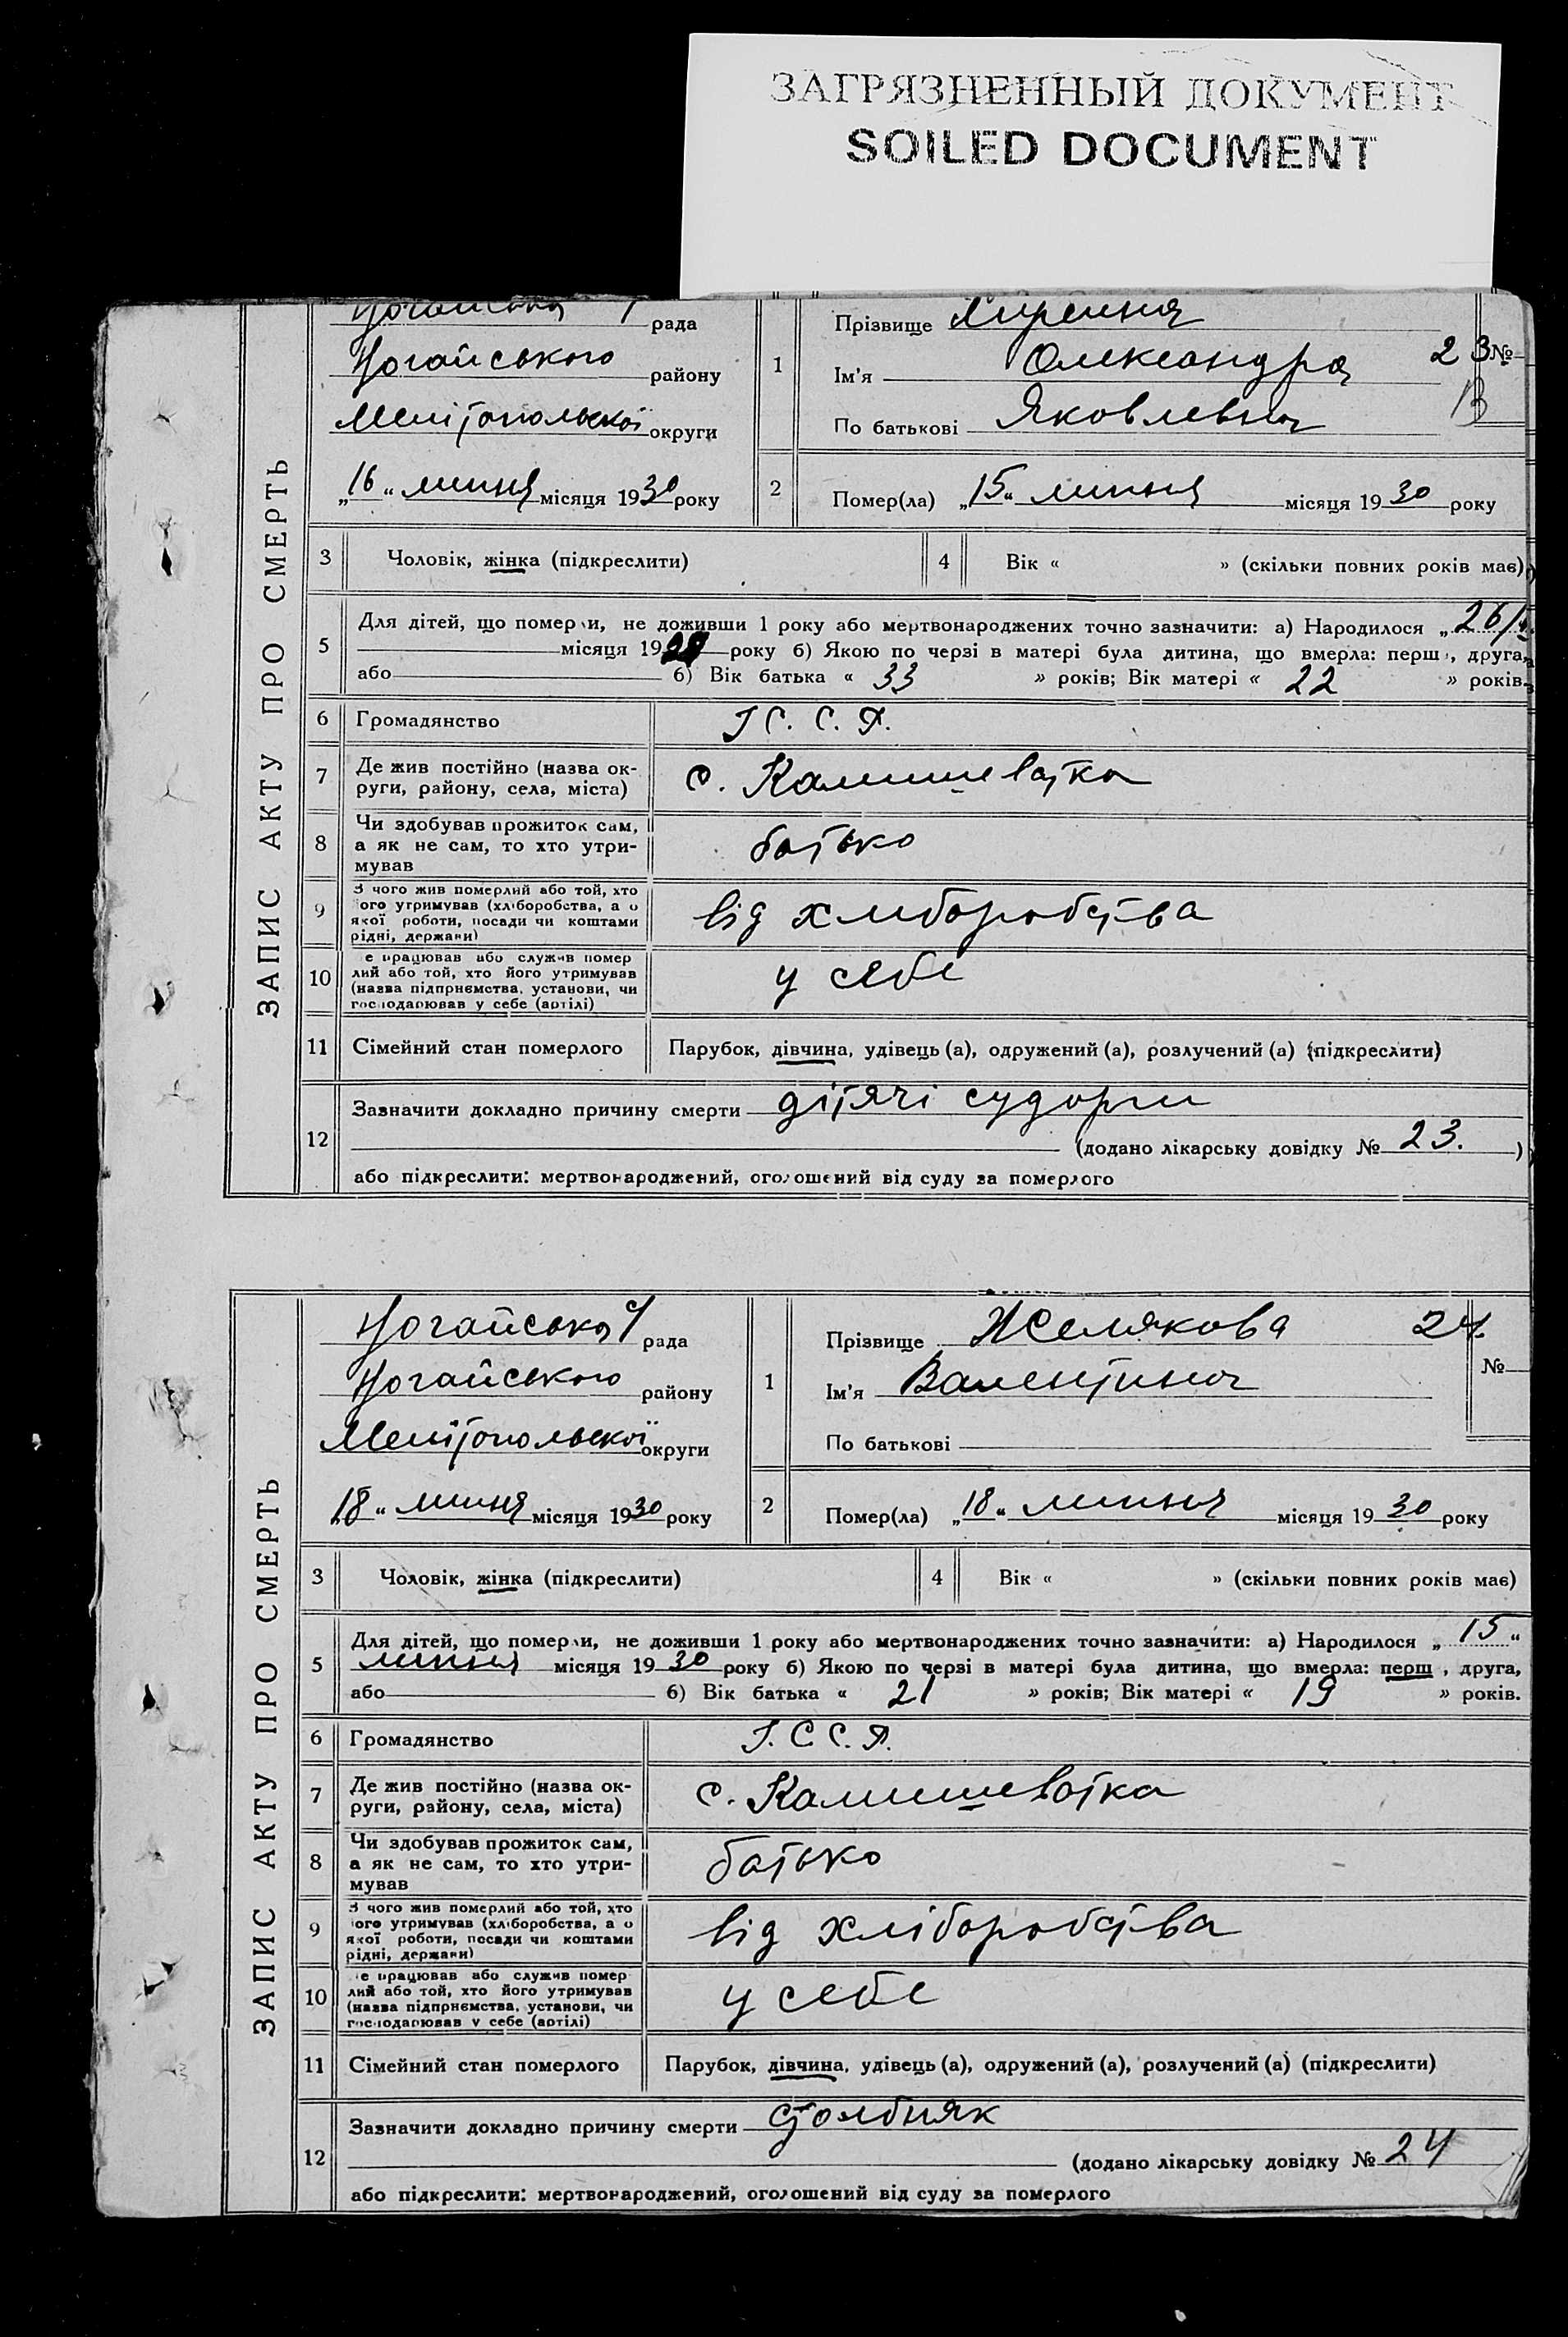 ЗАГРЯЗНЕННЫЙ ДОКУМЕНТ
SOILED DOCUMENT
ЗАПИС АКТУ ПРО СМЕРТЬ
Ногайська рада
Ногайського району
Мелітопольської округи
„16“ липня місяця 1930 року
1
Прізвище
Ім'я Олександра
По батькові Яковлевна
23 №
13
2
Помер(ла) „15“ липня місяця 1930 року
3 Чоловік, жінка (підкреслити)
4 Вік « » (скільки повних років має)
5
Для дітей, що померли, не доживши 1 року або мертвонароджених точно зазначити: а) Народилося „26/
місяця 19 року б) Якою по черзі в матері була дитина, що вмерла: перш, друга,
або б) Вік батька « 33 » років; Вік матері « 22 » років.
6 Громадянство
С. С. Р.
7 Де жив постійно (назва ок-
руги, району, села, міста)
с. Камишеватка
8
Чи здобував прожиток сам,
а як не сам, то хто утри-
мував
батько
9
З чого жив померлий або той, хто
ого утримував (хліборобства, а о
якої роботи, посади чи коштами
рідні, держави)
від хліборобства
10
е працював або служив помер
лий або той, хто його утримував
(назва підприємства, установи, чи
господарював у себе (артілі)
у себе
11 Сімейний стан померлого
Парубок, дівчина, удівець (а), одружений (а), розлучений (а) (підкреслити)
12
Зазначити докладно причину смерти дітячі судорги
(додано лікарську довідку № 23. )
або підкреслити: мертвонароджений, оголошений від суду за померлого
ЗАПИС АКТУ ПРО СМЕРТЬ
Ногайська с/рада
Ногайського району
Мелітопольської округи
18“ липня місяця 1930 року
1
Прізвище Желякова
Ім'я Валентина
По батькові
24.
№
2
Помер(ла) „18“ липня місяця 1930 року
3 Чоловік, жінка (підкреслити)
4 Вік « » (скільки повних років має)
5
Для дітей, що померли, не доживши 1 року або мертвонароджених точно зазначити: а) Народилося „15“
липня місяця 1930 року б) Якою по черзі в матері була дитина, що вмерла: перш, друга,
або б) Вік батька « 21 » років; Вік матері « 19 » років.
6 Громадянство
С. С. Р.
7 Де жив постійно (назва ок-
руги, району, села, міста)
с. Камишеватка
8
Чи здобував прожиток сам,
а як не сам, то хто утри-
мував
батько
9
З чого жив померлий або той, хто
ого утримував (хліборобства, а о
якої роботи, посади чи коштами
рідні, держави)
від хліборобства
10
е працював або служив помер
лий або той, хто його утримував
(назва підприємства, установи, чи
господарював у себе (артілі)
у себе
11 Сімейний стан померлого
Парубок, дівчина, удівець (а), одружений (а), розлучений (а) (підкреслити)
12
Зазначити докладно причину смерти столбняк
(додано лікарську довідку № 24
або підкреслити: мертвонароджений, оголошений від суду за померлого